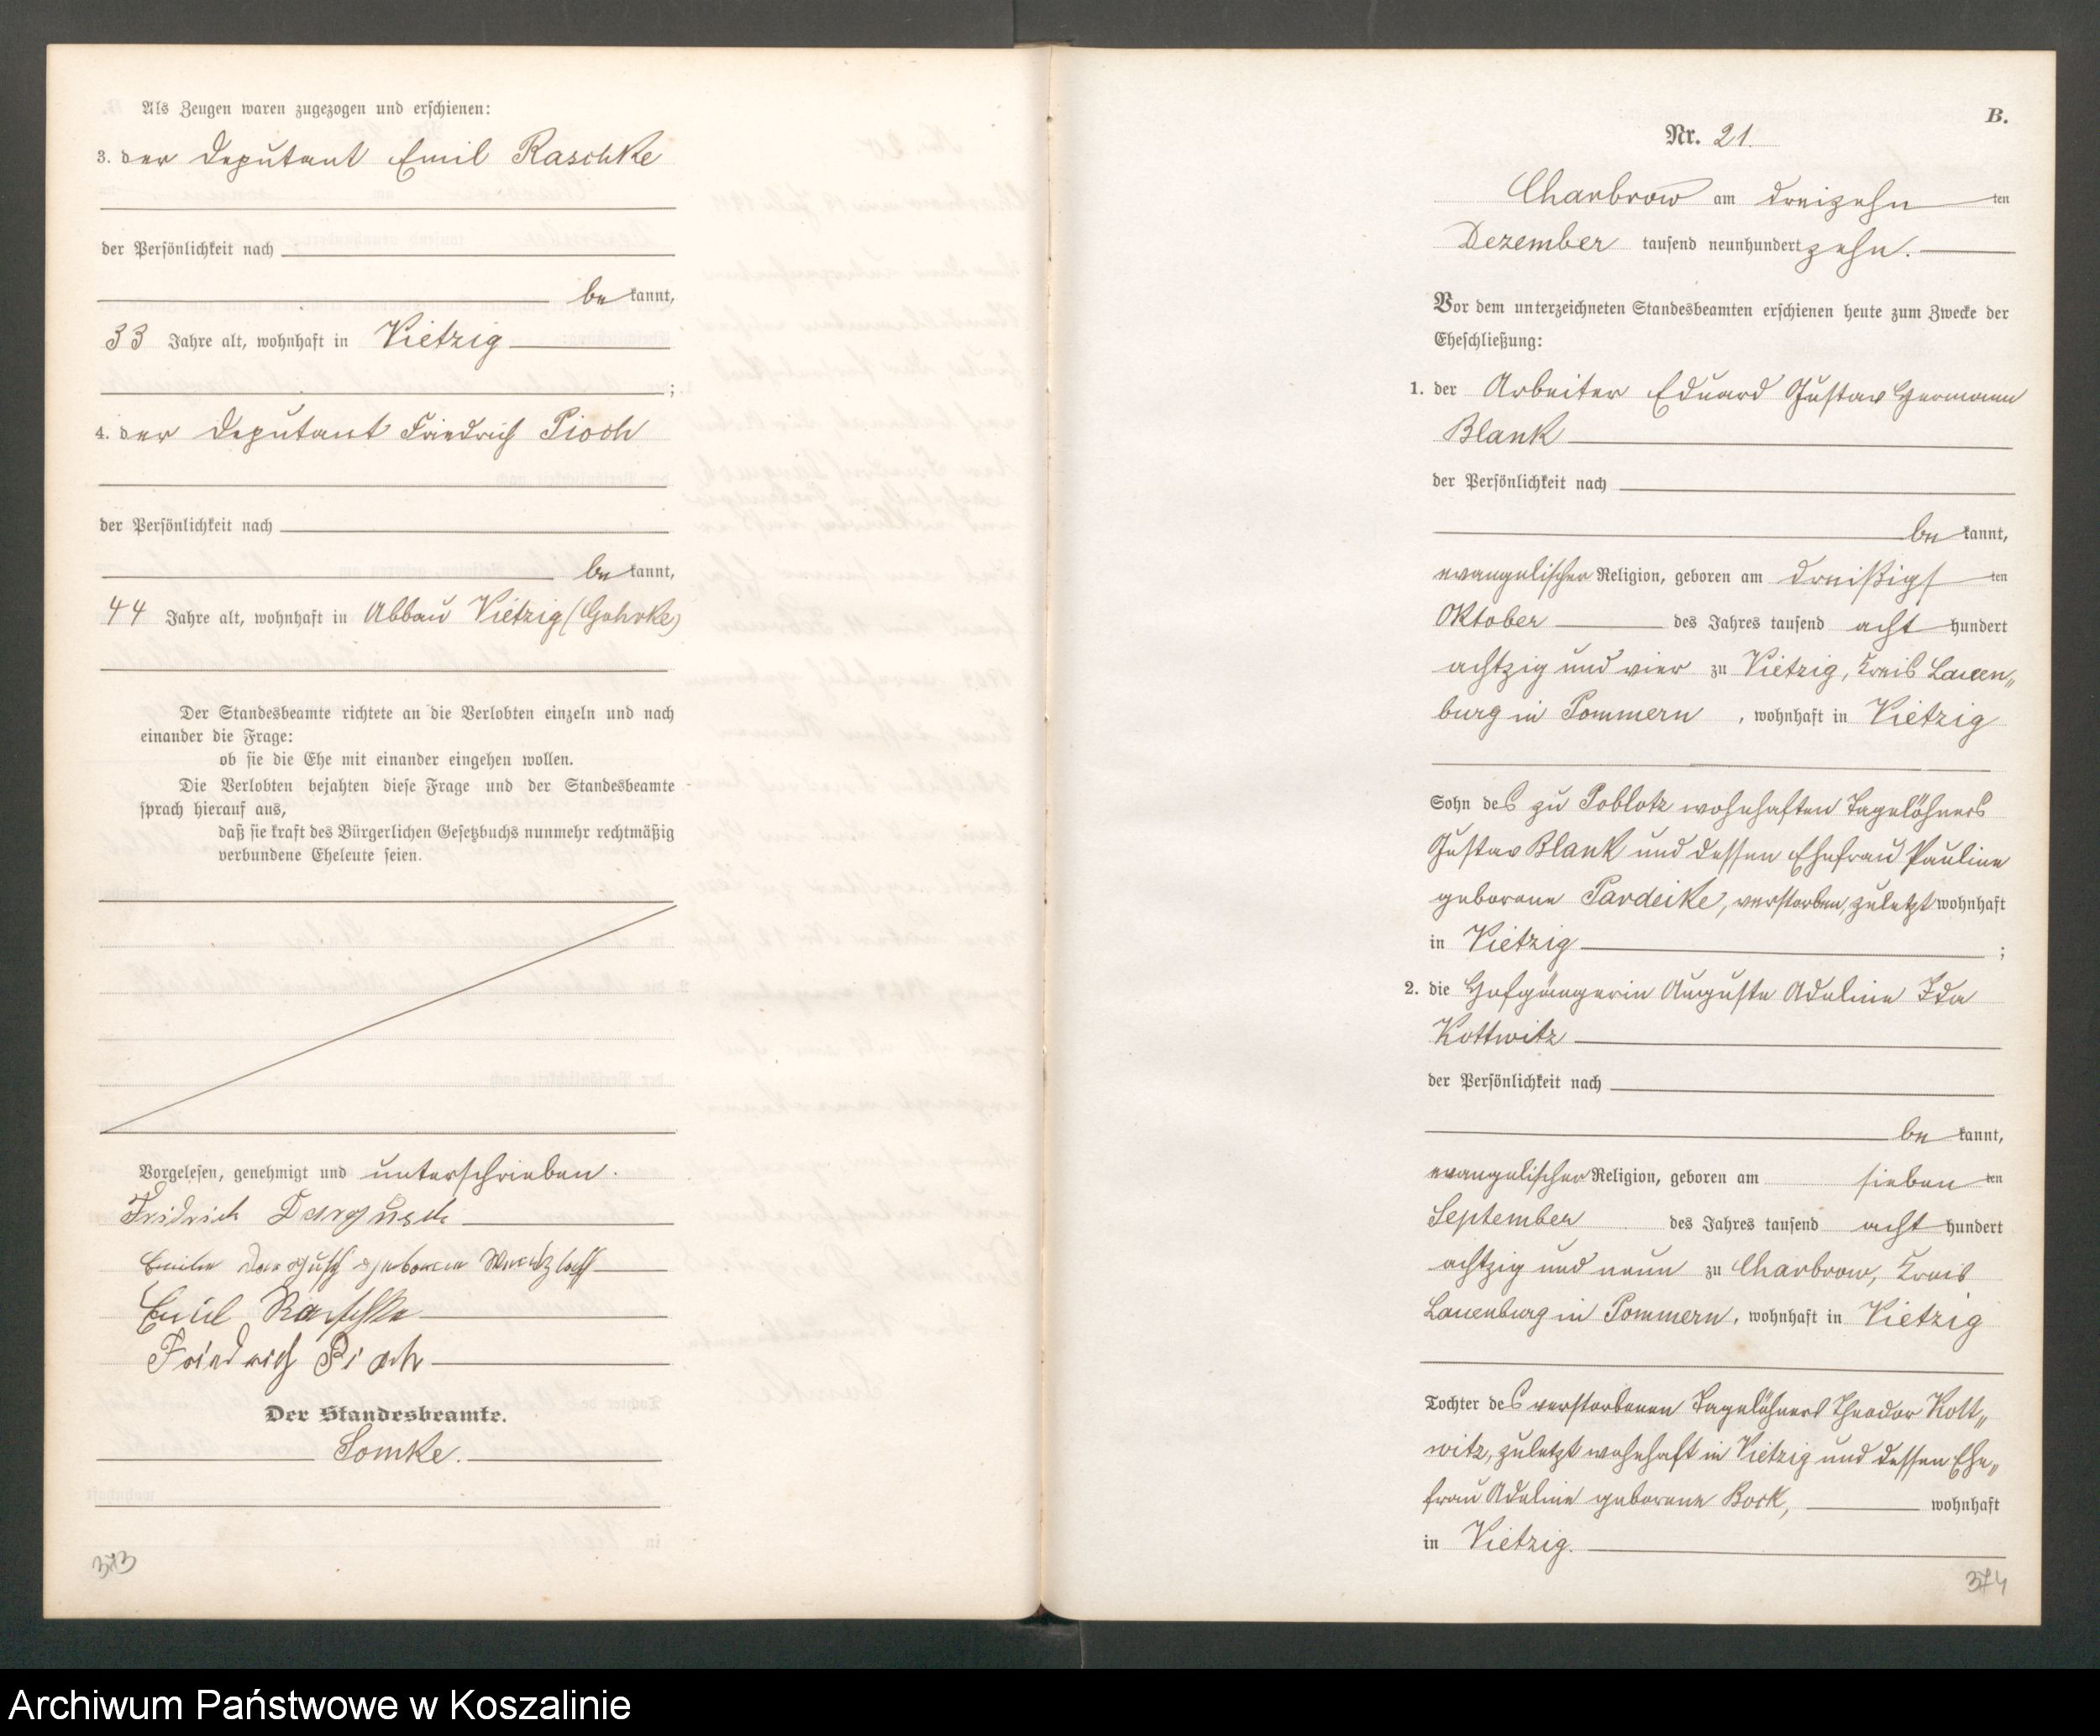 Als Zeugen waren zugezogen und erschienen:
3. der Deputant Emil Raschke
der Persönlichkeit nach
be kannt,
33 Jahre alt, wohnhaft in Vietzig
;
4. der Deputant Friedrich Pioch
der Persönlichkeit nach
be kannt,
44 Jahre alt, wohnhaft in Abbau Vietzig (Gohrke)
Der Standesbeamte richtete an die Verlobten einzeln und nach
einander die Frage:
ob sie die Ehe mit einander eingehen wollen.
Die Verlobten bejahten diese Frage und der Standesbeamte
sprach hierauf aus,
daß sie kraft des Bürgerlichen Gesetzbuchs nunmehr rechtmäßig
verbundene Eheleute seien.
Vorgelesen, genehmigt und unterschrieben.
Fridrich Dargusch
Emilie Dargusch geborene
Emil Raschke
Friedrich Pioch
Der Standesbeamte.
Lomke.
373
B.
Nr. 21.
Charbrow am dreizehn ten
Dezember tausend neunhundert zehn.
Vor dem unterzeichneten Standesbeamten erschienen heute zum Zwecke der
Eheschließung:
1. der Arbeiter Eduard Gustav Hermann
Blank
der Persönlichkeit nach
be kannt,
evangelischer Religion, geboren am dreißigs ten
Oktober des Jahres tausend acht hundert
achtzig und vier zu Vietzig, Kreis Lauen„
burg in Pommern, wohnhaft in Vietzig
Sohn des zu Poblotz wohnhaften Tagelöhners
Gustav Blank und dessen Ehefrau Pauline
geborene Pardeike, verstorben, zuletzt wohnhaft
in Vietzig ;
2. die Hofgängerin Auguste Adeline Ida
Kottwitz
der Persönlichkeit nach
be kannt,
evangelischer Religion, geboren am sieben ten
September des Jahres tausend acht hundert
achtzig und neun zu Charbrow, Kreis
Lauenburg in Pommern, wohnhaft in Vietzig
Tochter des verstorbenen Tagelöhners Theodor Kott„
witz, zuletzt wohnhaft in Vietzig und dessen Ehe„
frau Adeline geborene Bock, wohnhaft
in Vietzig.
374
Archiwum Państwowe w Koszalinie